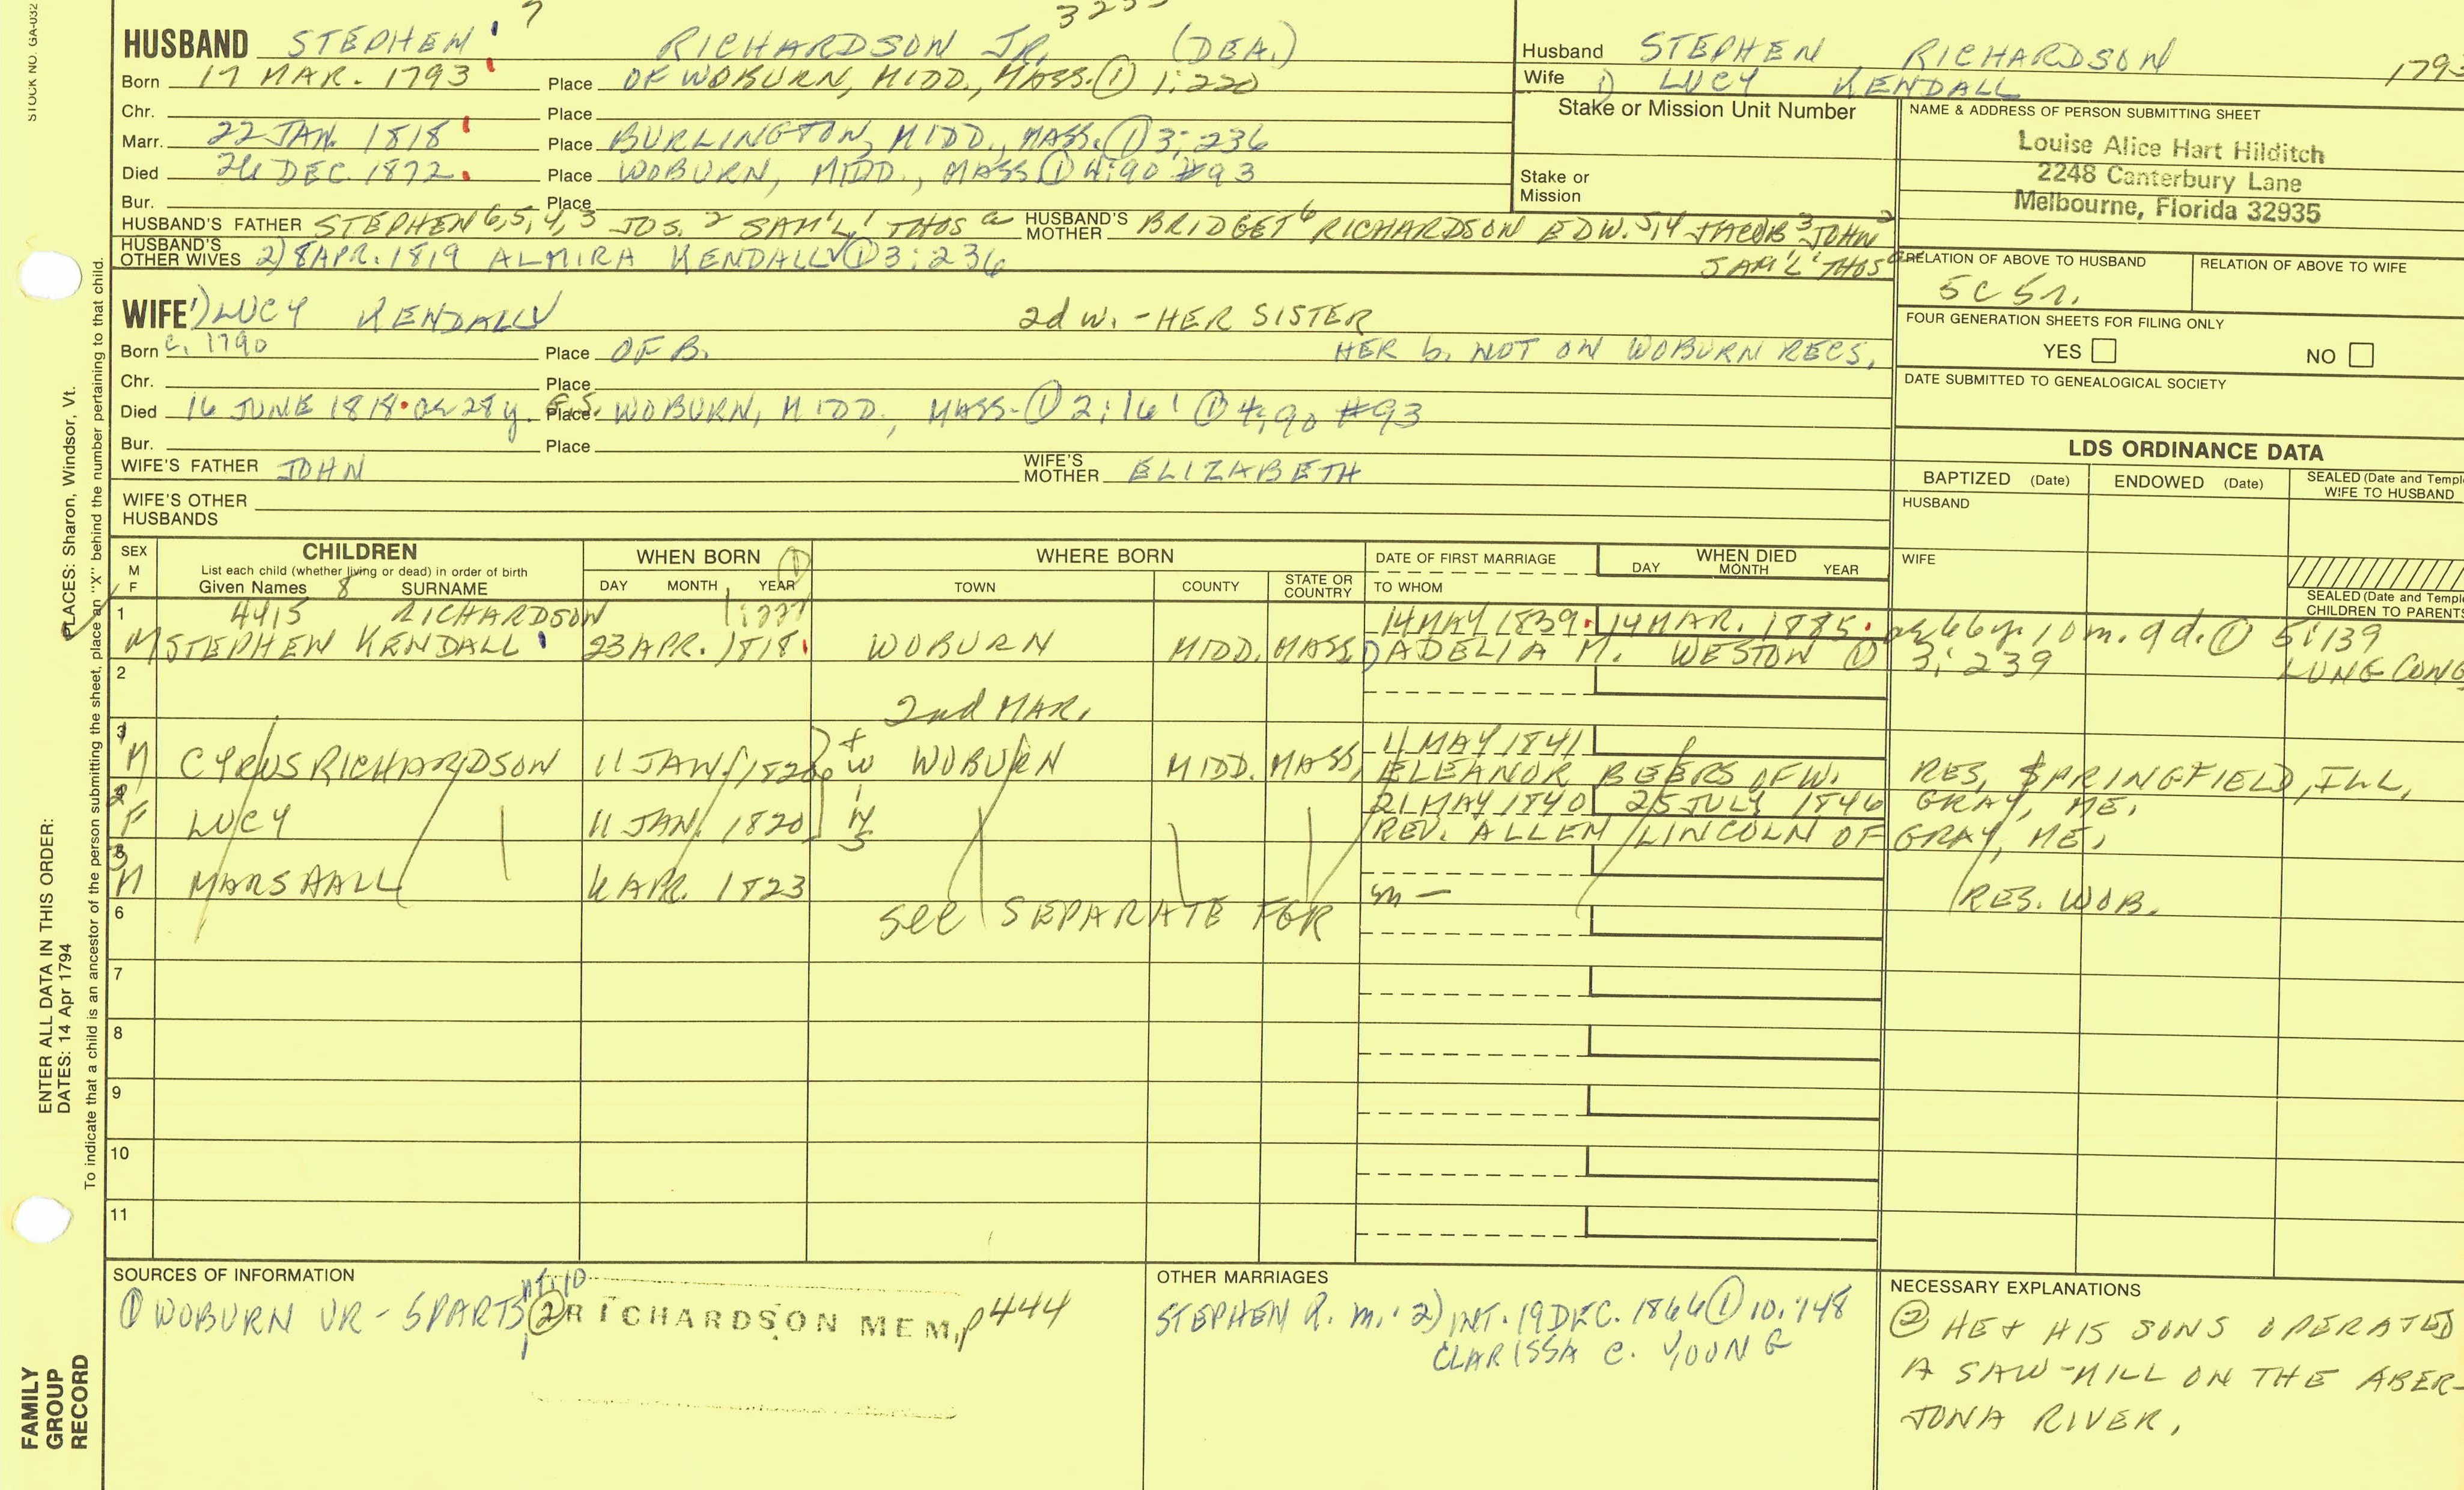 STOCK NO. GA-032
7 3255
HUSBAND STEPHEN RICHARDSON JR. (DEA.)
Born 17 MAR. 1793 Place OF WOBURN, MIDD., MASS. ① 1:220
Chr. Place
Marr. 22 JAN. 1818 Place BURLINGTON, MIDD., MASS. ① 3:236
Died 26 DEC. 1872. Place WOBURN, MIDD., MASS ① 4:90 #93
Bur. Place
HUSBAND'S FATHER STEPHEN 6,5,4,3 JOS. 2 SAM'L 1 THOS a HUSBAND'S MOTHER BRIDGET 6 RICHARDSON EDW. 5,4 JACOB 3 JOHN 2
SAM'L 1 THOS a
HUSBAND'S OTHER WIVES 2) 8 APR. 1819 ALMIRA KENDALL ① 3:236
WIFE 1) LUCY KENDALL 2d w. - HER SISTER
Born c. 1790 Place OF B. HER b. NOT ON WOBURN RECS.
Chr. Place
Died 16 JUNE 1818. ae 28 y. G.S. Place WOBURN, MIDD., MASS. ① 2:161 ① 4:90 #93
Bur. Place
WIFE'S FATHER JOHN WIFE'S MOTHER ELIZABETH
WIFE'S OTHER HUSBANDS
Husband STEPHEN RICHARDSON 1793
Wife 1) LUCY KENDALL
Stake or Mission Unit Number
Stake or Mission
NAME & ADDRESS OF PERSON SUBMITTING SHEET
Louise Alice Hart Hilditch
2248 Canterbury Lane
Melbourne, Florida 32935
RELATION OF ABOVE TO HUSBAND RELATION OF ABOVE TO WIFE
5C 5r.
FOUR GENERATION SHEETS FOR FILING ONLY
YES NO
DATE SUBMITTED TO GENEALOGICAL SOCIETY
LDS ORDINANCE DATA
BAPTIZED (Date) ENDOWED (Date) SEALED (Date and Templ
WIFE TO HUSBAND
HUSBAND
WIFE
SEALED (Date and Temple
CHILDREN TO PARENTS
SEX M F CHILDREN WHEN BORN ① WHERE BORN DATE OF FIRST MARRIAGE WHEN DIED
List each child (whether living or dead) in order of birth
Given Names 8 SURNAME DAY MONTH YEAR TOWN COUNTY STATE OR COUNTRY TO WHOM DAY MONTH YEAR
1 4415 RICHARDSON 14 MAY 1839. 14 MAR. 1885. ae 66 y. 10 m. 9 d. ① 5:139
M STEPHEN KENDALL 23 APR. 1818 WOBURN MIDD. MASS. 1) ADELIA M. WESTON ① 3:239 LUNG CONG
2
2nd MAR.
3 11 MAY 1841
M CYRUS RICHARDSON 11 JAN. 1820 WOBURN MIDD. MASS. ELEANOR BEERS OF W. RES. SPRINGFIELD, ILL.
2 21 MAY 1840 25 JULY 1846 GRAY, ME.
F LUCY 11 JAN. 1820 REV. ALLEN LINCOLN OF GRAY, ME.
TWINS
3
M MARSHALL 6 APR. 1823 m - RES. WOB.
6 See SEPARATE FGR
7
8
9
10
11
SOURCES OF INFORMATION
① WOBURN VR - 5 PARTS ② RICHARDSON MEM. p444
OTHER MARRIAGES
STEPHEN R. m. 2) INT. 19 DEC. 1866 ① 10:148
CLARISSA C. YOUNG
NECESSARY EXPLANATIONS
② HE + HIS SONS OPERATED
A SAW-MILL ON THE ABER-
JONA RIVER.
PLACES: Sharon, Windsor, Vt.
ENTER ALL DATA IN THIS ORDER:
DATES: 14 Apr 1794
To indicate that a child is an ancestor of the person submitting the sheet, place an "X" behind the number pertaining to that child.
FAMILY
GROUP
RECORD